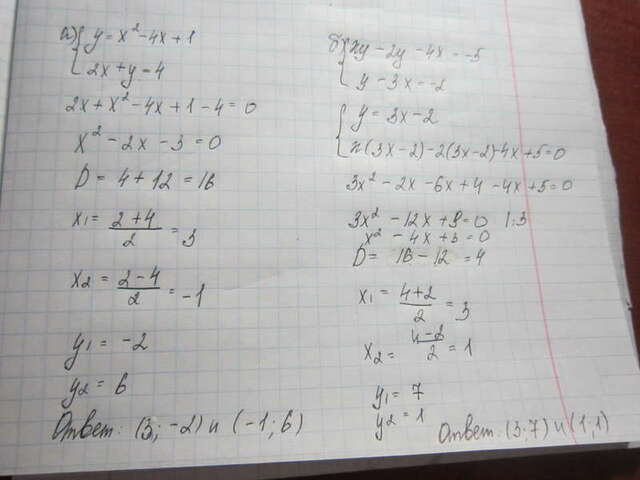 а) { y = x² - 4x + 1
2x + y = 4
2x + x² - 4x + 1 - 4 = 0
x² - 2x - 3 = 0
D = 4 + 12 = 16
x₁ = (2+4)/2 = 3
x₂ = (2-4)/2 = -1
y₁ = -2
y₂ = 6
Ответ: (3; -2) и (-1; 6)
б) { xy - 2y - 4x = -5
y - 3x = -2
{ y = 3x - 2
x(3x-2) - 2(3x-2) - 4x + 5 = 0
3x² - 2x - 6x + 4 - 4x + 5 = 0
3x² - 12x + 9 = 0 | : 3
x² - 4x + 3 = 0
D = 16 - 12 = 4
x₁ = (4+2)/2 = 3
x₂ = (4-2)/2 = 1
y₁ = 7
y₂ = 1
Ответ: (3; 7) и (1; 1)